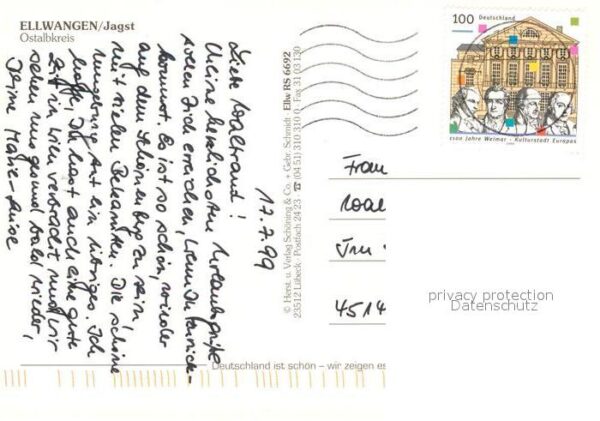 ELLWANGEN/Jagst
Ostalbkreis
17.7.99
Liebe Waltraud!
Meine herzlichsten Urlaubsgrüße
sollen Dich erreichen, wenn Du zurück-
kommst. Es ist so schön, wieder
auf dem Schönenberg zu sein,
mit vielen Bekannten. Die schöne
Umgebung tut ein übriges. Ich
hoffe, Du hast auch eine gute
Zeit in Wien verbracht und wir
sehen uns gesund bald wieder,
Deine Marie-Luise
© Herst. u. Verlag Schöning & Co. + Gebr. Schmidt · Ellw RS 6692
23512 Lübeck · Postfach 24 23 · ☎ (04 51) 310 310 · Fax 31 03 130
100 Deutschland
1100 Jahre Weimar - Kulturstadt Europas
Frau
4514
privacy protection
Datenschutz
Deutschland ist schön – wir zeigen es